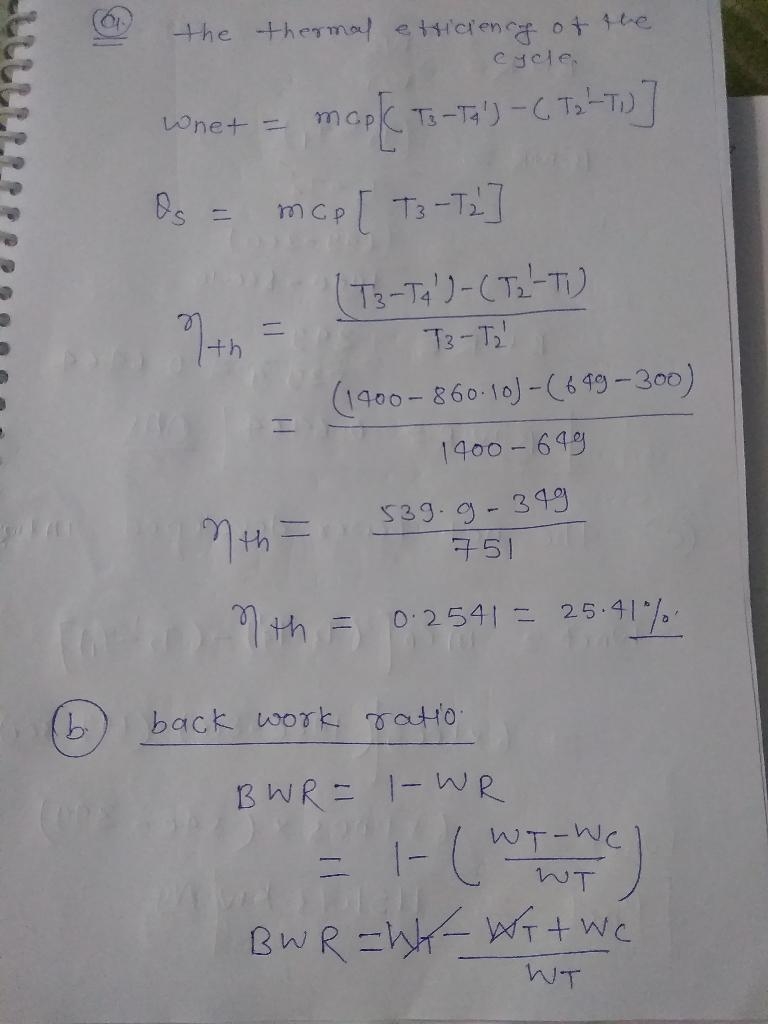 (a) the thermal efficiency of the
cycle.
Wnet = mCp[(T3-T4')-(T2'-T1)]
Qs = mCp[T3-T2']
ηth = (T3-T4')-(T2'-T1) / T3-T2'
= (1400-860.10)-(649-300) / 1400-649
ηth = 539.9-349 / 751
ηth = 0.2541 = 25.41%.
(b.) back work ratio.
BWR = 1-WR
= 1-(WT-WC / WT)
BWR = WT-WT+WC / WT